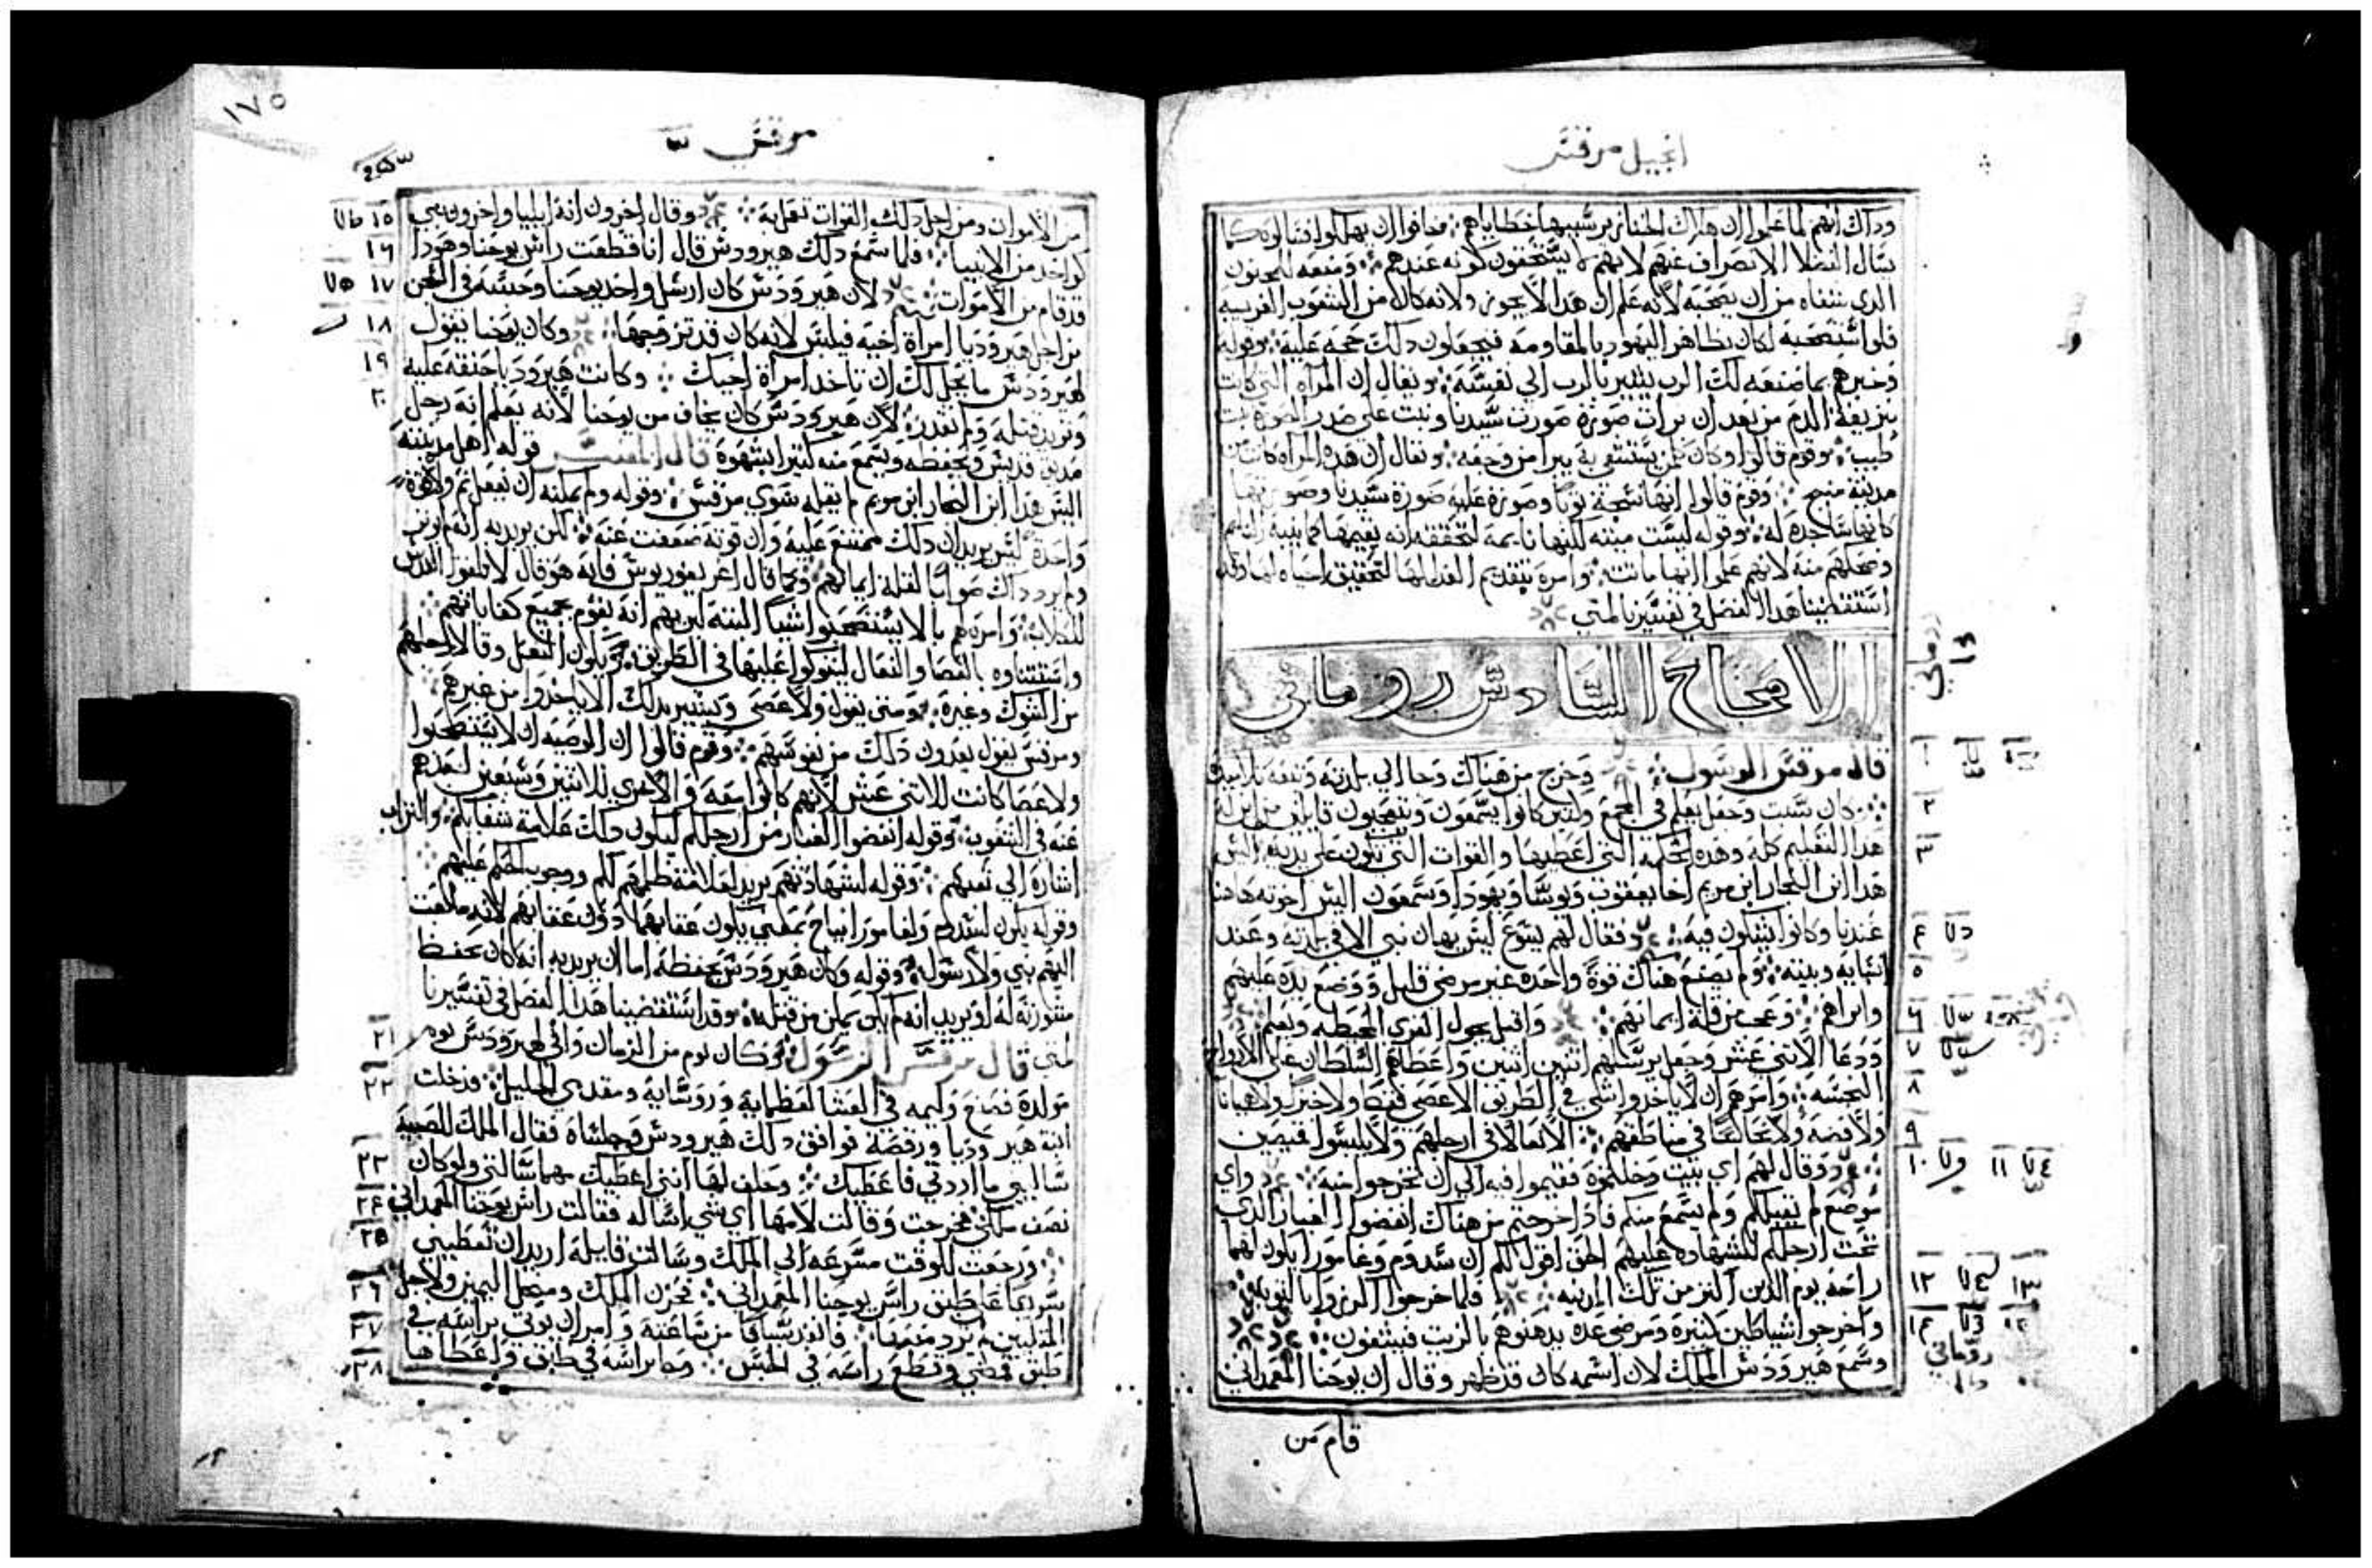 انجيل مرقس
وذاك انهم لما علموا ان هلاك الخنازير بسببها خطاياهم فخافوا ان يهلكوا
سال الفضلا الانصراف عنهم لانهم لا يستحقون كونه عندهم ومنعه للمجنون
الذي شفاه من ان يصحبه لانه علم ان هذا لا يجوز ولانه كان من الشعوب الغريبه
فلو استصحبه لكان يظاهر اليهود بالمقاومه فيجعلون ذلك حجه عليه وقوله
وخبرهم بما صنعه لك الرب يشير بالرب الي نفسه ويقال ان المراه التي كانت
بنزيف الدم من بعد ان برات صورة صورت سيدنا
طبيب وقوم قالوا وكان من يستشفي به يبرا من وجعه ويقال ان هذه المراه كانت من
مدينة منبج وقوم قالوا انها نسجت ثوبا وصورة عليه صورة سيدنا وصورتها
كانها ساجدة له وقوله ليست ميته لكنها نايمة لتحققه انه يقيمها
وضحكهم منه لانهم علموا انها ماتت وامره بتقديم الغدا لها لتحقيق احياه لها وقد
استقصينا هذا الفصل في تفسيرنا لمتي
الاصحاح السادس روماني
قال مرقس الرسول وخرج من هناك وجا الي بلدته وتبعه تلاميذه
كان سبت وجعل يعلم في المجمع وكثير كانوا يسمعون ويتعجبون قايلين من اين له
هذا التعليم كله وهذه الحكمة التي اعطيها والقوات التي تكون علي يديه اليس
هذا ابن النجار ابن مريم اخا يعقوب ويوسا ويهودا وسمعون اليس اخوته هاهنا
عندنا وكانوا يشكون فيه فقال لهم يسوع ليس يهان نبي الا في بلدته وعند
انسابه وبيته ولم يصنع هناك قوة واحده غير مرضي قليل ووضع يده عليهم
وابراهم وعجب من قلة ايمانهم واقبل يجول القري المحيطه ويعلم
ودعا الاثني عشر وجعل يرسلهم اثنين اثنين واعطاهم السلطان علي الارواح
النجسه وامرهم ان لا ياخذوا شي في الطريق الا عصي فقط ولا خبز ولا هميانا
ولا فضه ولا نحاسا في مناطقهم الا نعالا في ارجلهم ولا يلبسوا قميصين
وقال لهم اي بيت دخلتموه فقيموا فيه الي ان تخرجوا منه واي
موضع لم يقبلكم ولم يسمع منكم فاذا خرجتم من هناك انفضوا الغبار الذي
تحت ارجلكم للشهاده عليهم الحق اقول لكم ان سدوم وغامورا يكون لهما
راحة يوم الدين اكثر من تلك المدينه فلما خرجوا اكرزوا بالتوبه
واخرجوا شياطين كثيرة ومرضي عده يدهنوهم بالزيت فيشفون
وسمع هيرودس الملك لان اسمه كان قد ظهر وقال ان يوحنا المعمداني
قام من
١٧٥
مرقس
من الاموات ومن اجل ذلك القوات تعمل به وقال اخرون انه ايليا واخرون نبي
كواحد من الانبيا فلما سمع ذلك هيرودس قال انا قطعت راس يوحنا وهو ذا
قد قام من الاموات لان هيرودس كان ارسل واخذ يوحنا وحبسه في السجن
من اجل هيروديا امراة اخيه فيلبس لانه كان قد تزوجها وكان يوحنا يقول
لهيرودس ما يحل لك ان تاخذ امراة اخيك وكانت هيروديا حنقه عليه
وتريد قتله ولم تقدر لان هيرودس كان يخاف من يوحنا لانه يعلم انه رجل
صديق قديس ويحفظه ويسمع منه كثيرا بشهوة قال المفسر قوله اهل مدينته
اليس هذا ابن النجار ابن مريم لم يقله سوي مرقس وقوله ولم يمكنه ان يفعل ثم ولا قوة
واحدة ليس يريد ان ذلك ممتنع عليه وان قوته ضعفت عنه لكن يريد به انه لم
ولم يرد ذاك صوابا لقلة ايمانهم وكما قال اغريغوريوس فانه هو قال لا تلقوا القدس
للكلاب وامره هم بالا يستصحبوا شيا البته ليريهم انه يقوم بجميع كفاياتهم
واستثناوه بالعصا والنعال ليتوكوا عليها في الطريق
من الشوك وغيره ومتي يقول ولا عصي ويشير بذلك الا ياخذوا من غيرهم
ومرقس يقول يعدون ذلك من نفوسهم وقوم قالوا ان الوصيه ان لا يستصحبوا
ولا عصا كانت للاثني عشر لانهم كانوا معه والاخري للاثنين وسبعين لبعدهم
عنه وقوله انفضوا الغبار من ارجلكم ليكون ذلك علامة شقايكم والتراب
اشارة الي تعبكم وقوله لشهادتهم يريد لعلامة ظلمهم لكم ووجوب الحكم عليهم
وقوله يكون لسدوم ولغامورا نياح بمعني يكون عقابهما دون عقابهم لانه ما بعث
اليهم نبي ولا رسول وقوله وكان هيرودس يحفظه اما ان يريد به انه كان يحفظ
مشورته له او يريد انه لم يكن يمكن من قتله وقد استقصينا هذا الفصل في تفسيرنا
لمتي قال مرقس الرسول وكان يوم من الزمان وافي لهيرودس يوم
مولده فصنع وليمه في العشا لعظمايه وروسايه ومقدمي الجليل فدخلت
ابنة هيروديا ورقصة فوافق ذلك هيرودس وجلساه فقال الملك للصبية
ساليني ما اردتي فاعطيك وحلف لها انني اعطيك مهما سالتي ولو كان
نصف ملكي فخرجت وقالت لامها اي شي اساله فقالت راس يوحنا المعمداني
ورجعت للوقت مسرعه الي الملك وسالت قايلة اريد ان تعطيني
سريعا علي طبق راس يوحنا المعمداني فحزن الملك ومن اجل اليمين ولاجل
المتكيين لم يرد منعها فانفذ سيافا من ساعته وامر ان يوتي براسه في
طبق فمضي وقطع راسه في الحبس وجا براسه في طبق واعطاها